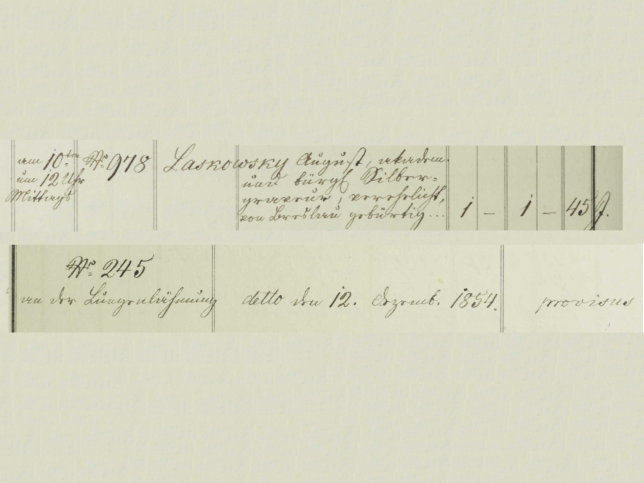 am 10ten No. 978 Laskowsky August, akadem.
um 12 Uhr und bürgl. Silber-
Mittags graveur, verehelicht,
von Breslau gebürtig... 1 – 1 – 45 J.
No. 245
an der Lungenlähmung detto den 12. Dezemb. 1854. provisus